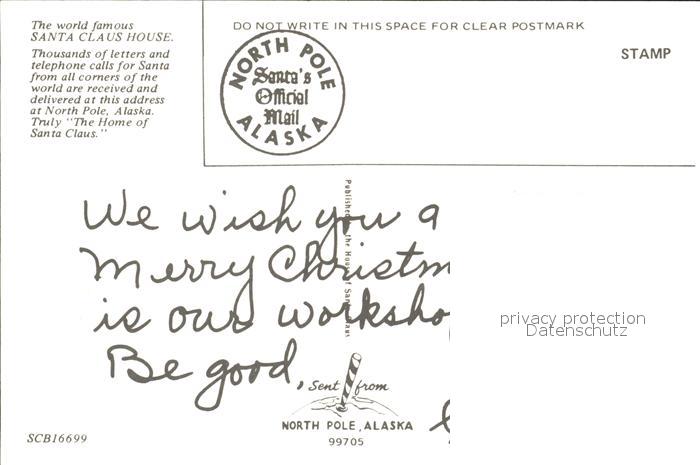 The world famous
SANTA CLAUS HOUSE.
Thousands of letters and
telephone calls for Santa
from all corners of the
world are received and
delivered at this address
at North Pole, Alaska.
Truly "The Home of
Santa Claus."
DO NOT WRITE IN THIS SPACE FOR CLEAR POSTMARK
STAMP
NORTH POLE
Santa's
Official
Mail
ALASKA
Published by the House of Santa Claus
We wish you a
Merry Christm
is our worksho
Be good,
privacy protection
Datenschutz
Sent from
NORTH POLE, ALASKA
99705
SCB16699